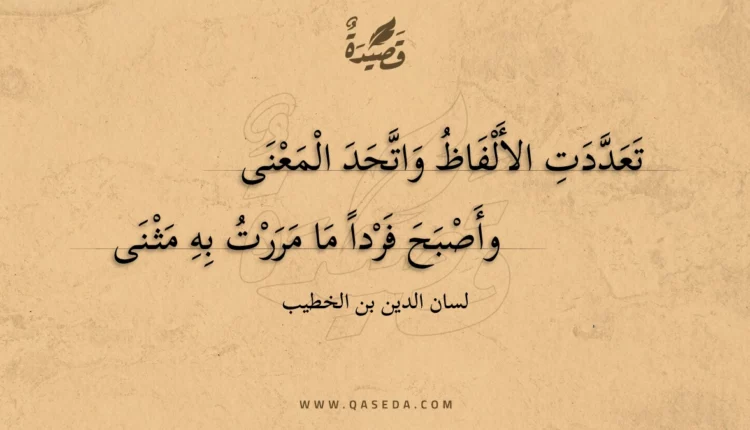 قَصِيدَةٌ
تَعَدَّدَتِ الأَلْفَاظُ وَاتَّحَدَ الْمَعْنَى
وأَصْبَحَ فَرْداً مَا مَرَرْتُ بِهِ مَثْنَى
لسان الدين بن الخطيب
WWW.QASEDA.COM